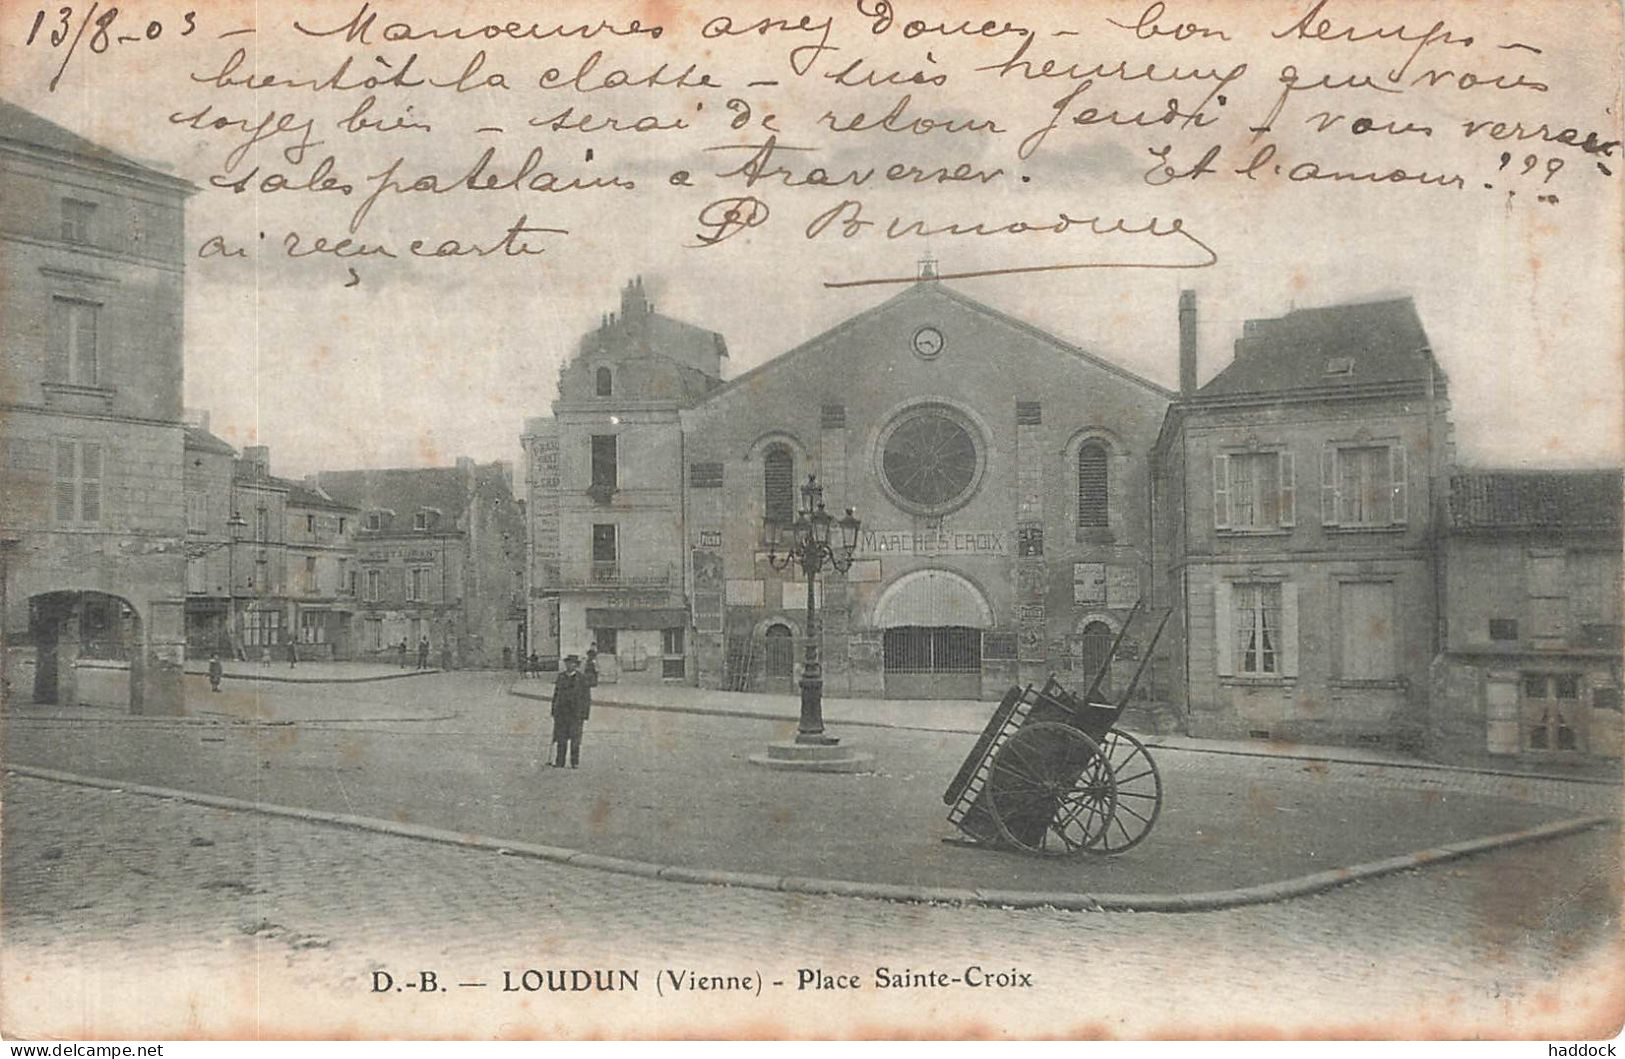 13/8-03 - Manoeuvres assez Douces - bon temps -
bientôt la classe - suis heureux que vous
soyez bien - serai de retour Jeudi - vous verrai
sales patelins a traverser. Et l'amour !???
ai reçu carte P
MARCHE Ste CROIX
RESTAURANT
D.-B. — LOUDUN (Vienne) - Place Sainte-Croix
www.delcampe.net
haddock